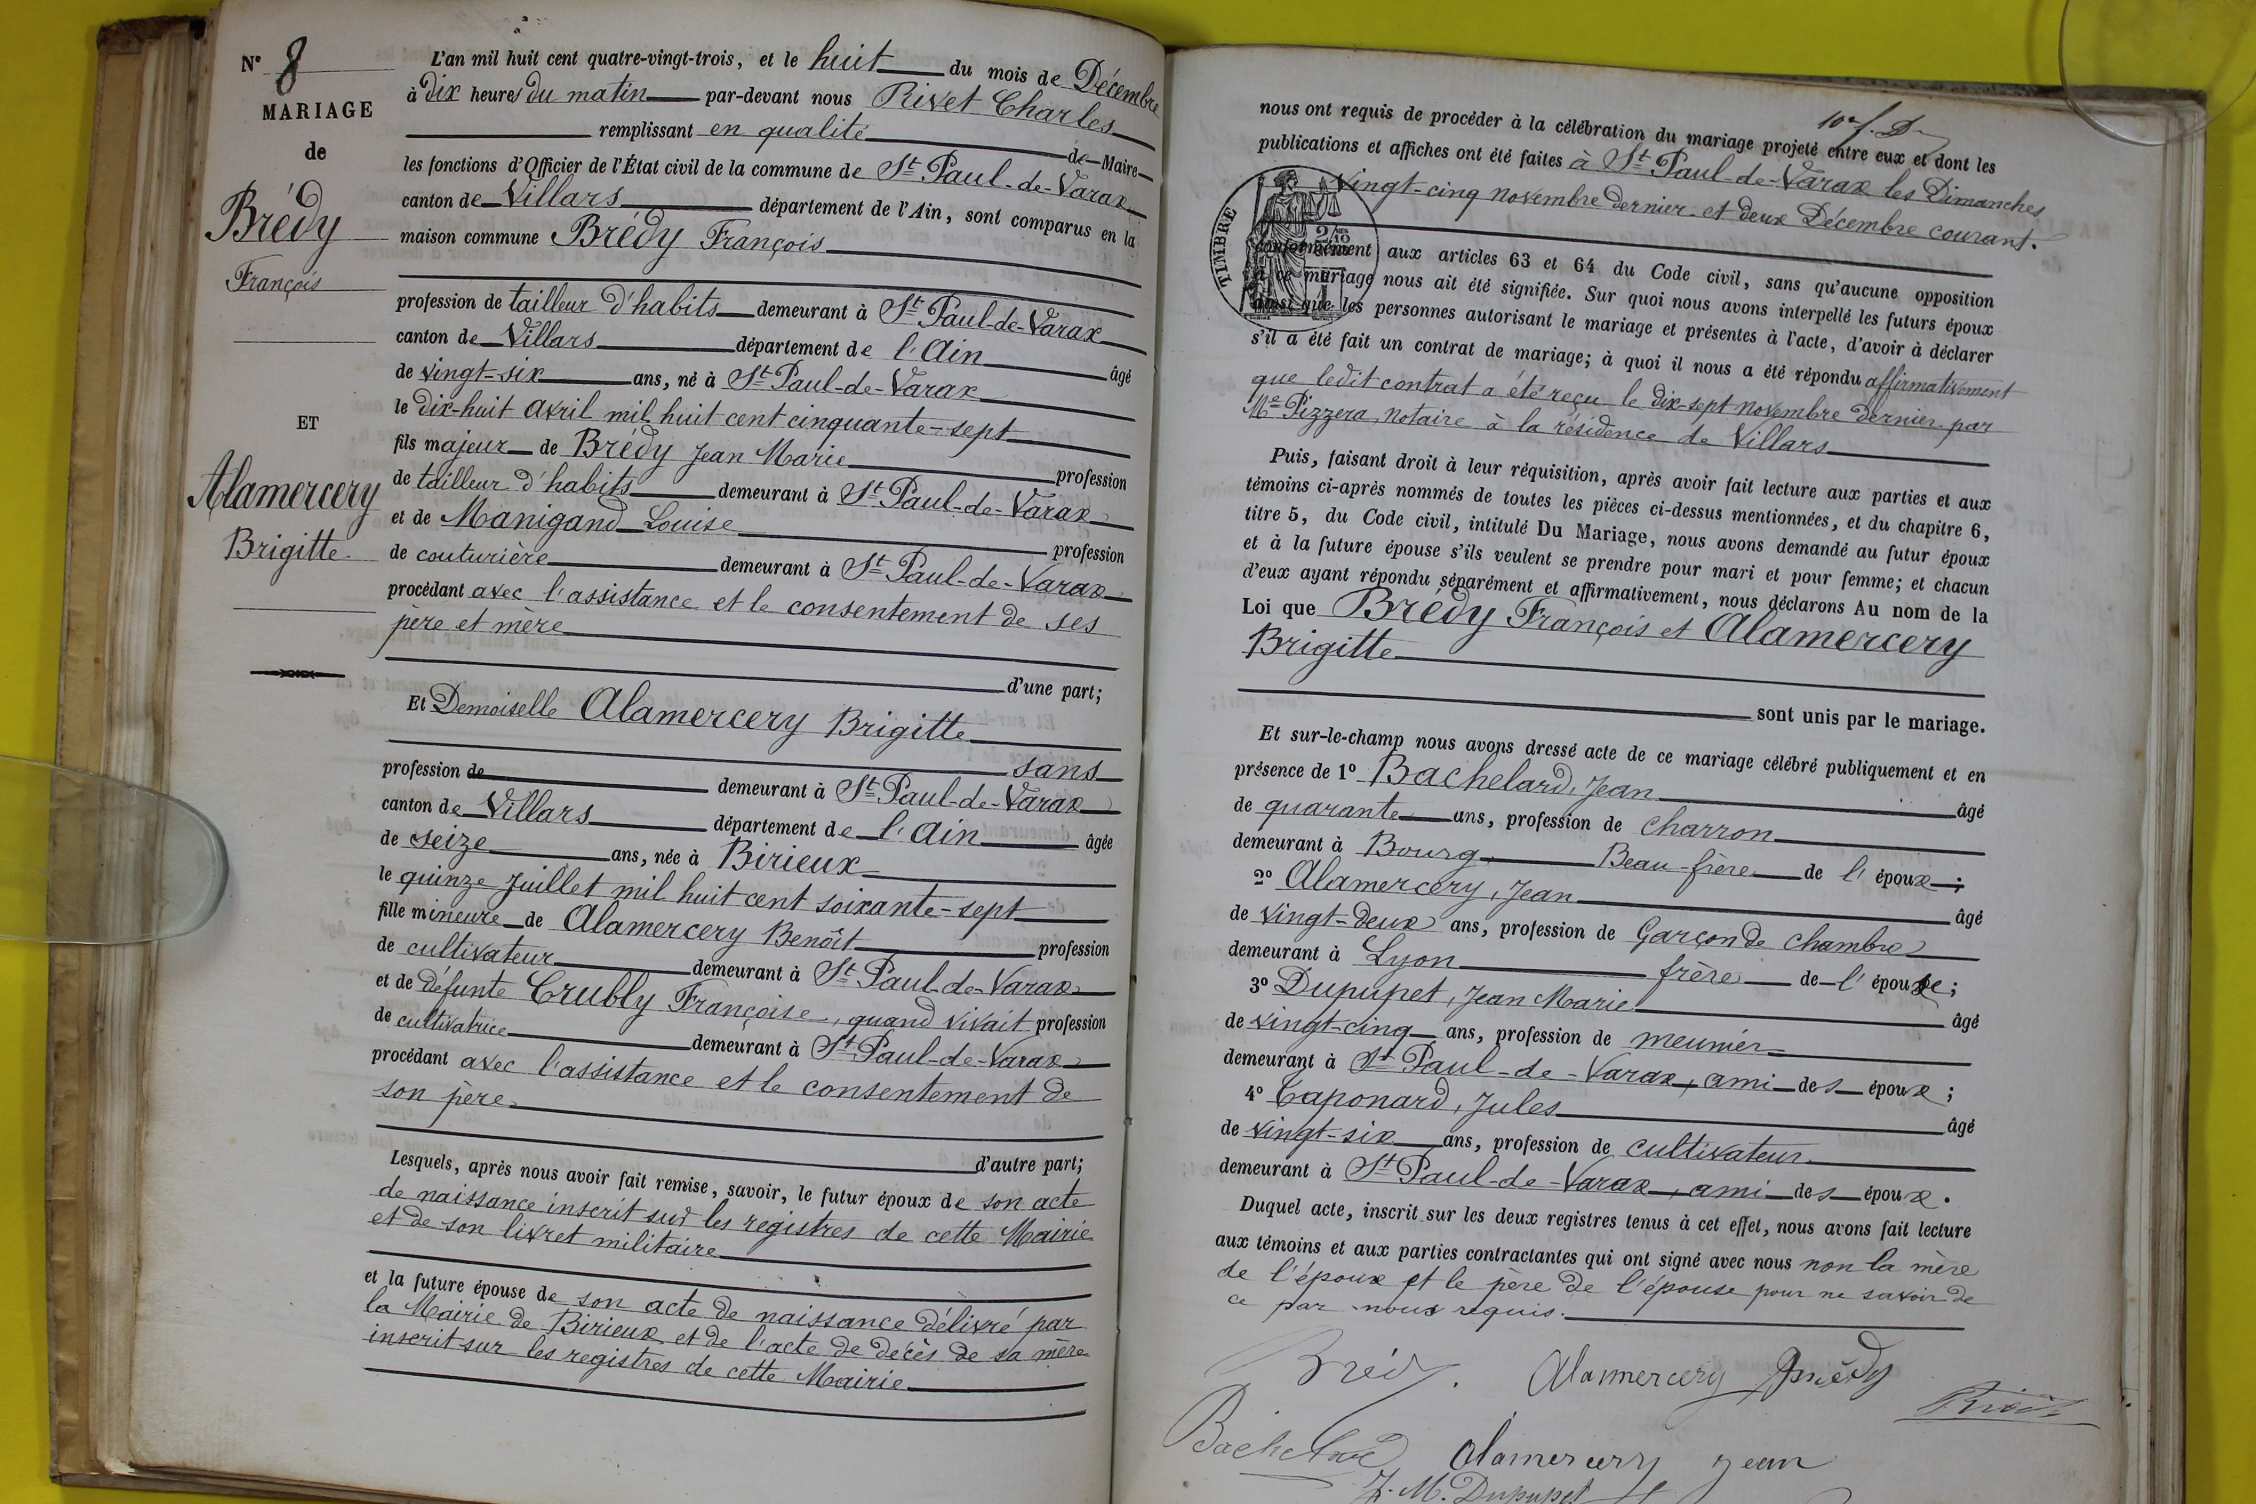 N° 8
MARIAGE
de
Brédy
François
ET
Alamercery
Brigitte
L'an mil huit cent quatre-vingt-trois, et le huit du mois de Décembre
à dix heures du matin par-devant nous Rivet Charles
remplissant en qualité de Maire
les fonctions d'Officier de l'État civil de la commune de St Paul-de-Varax
canton de Villars département de l'Ain, sont comparus en la
maison commune Brédy François
profession de tailleur d'habits demeurant à St Paul-de-Varax
canton de Villars département de l'Ain âgé
de vingt-six ans, né à St Paul-de-Varax
le dix-huit avril mil huit cent cinquante-sept
fils majeur de Brédy Jean Marie profession
de tailleur d'habits demeurant à St Paul-de-Varax
et de Manigand Louise profession
de couturière demeurant à St Paul-de-Varax
procédant avec l'assistance et le consentement de ses
père et mère
d'une part;
Et Demoiselle Alamercery Brigitte
sans
profession de demeurant à St Paul-de-Varax
canton de Villars département de l'Ain âgée
de seize ans, née à Birieux
le quinze Juillet mil huit cent soixante-sept
fille mineure de Alamercery Benoît profession
de cultivateur demeurant à St Paul-de-Varax
et de défunte Crubly Françoise, quand vivait profession
de cultivatrice demeurant à St Paul-de-Varax
procédant avec l'assistance et le consentement de
son père
d'autre part;
Lesquels, après nous avoir fait remise, savoir, le futur époux de son acte
de naissance inscrit sur les registres de cette Mairie
et de son livret militaire
et la future épouse de son acte de naissance délivré par
la Mairie de Birieux et de l'acte de décès de sa mère
inscrit sur les registres de cette Mairie
nous ont requis de procéder à la célébration du mariage projeté entre eux et dont les
publications et affiches ont été faites à St Paul-de-Varax les Dimanches
vingt-cinq novembre dernier et deux Décembre courant.
TIMBRE
conformément aux articles 63 et 64 du Code civil, sans qu'aucune opposition
à ce mariage nous ait été signifiée. Sur quoi nous avons interpellé les futurs époux
ainsi que les personnes autorisant le mariage et présentes à l'acte, d'avoir à déclarer
s'il a été fait un contrat de mariage; à quoi il nous a été répondu affirmativement
que ledit contrat a été reçu le dix-sept novembre dernier par
Me Pizzera, notaire à la résidence de Villars
Puis, faisant droit à leur réquisition, après avoir fait lecture aux parties et aux
témoins ci-après nommés de toutes les pièces ci-dessus mentionnées, et du chapitre 6,
titre 5, du Code civil, intitulé Du Mariage, nous avons demandé au futur époux
et à la future épouse s'ils veulent se prendre pour mari et pour femme; et chacun
d'eux ayant répondu séparément et affirmativement, nous déclarons Au nom de la
Loi que Brédy François et Alamercery
Brigitte
sont unis par le mariage.
Et sur-le-champ nous avons dressé acte de ce mariage célébré publiquement et en
présence de 1° Bachelard, Jean
âgé
de quarante ans, profession de charron
demeurant à Bourg, Beau-frère de l'époux;
2° Alamercery, Jean âgé
de vingt-deux ans, profession de Garçon de chambre
demeurant à Lyon frère de l'épouse;
3° Dupupet, Jean Marie âgé
de vingt-cinq ans, profession de meunier
demeurant à St Paul-de-Varax, ami des époux;
4° Caponard, Jules âgé
de vingt-six ans, profession de cultivateur
demeurant à St Paul-de-Varax, ami des époux.
Duquel acte, inscrit sur les deux registres tenus à cet effet, nous avons fait lecture
aux témoins et aux parties contractantes qui ont signé avec nous non la mère
de l'époux et le père de l'épouse pour ne savoir de
ce par nous requis.
Brédy. Alamercery Brédy
Rivet
Bachelard Alamercery Jean
J. M. Dupupet